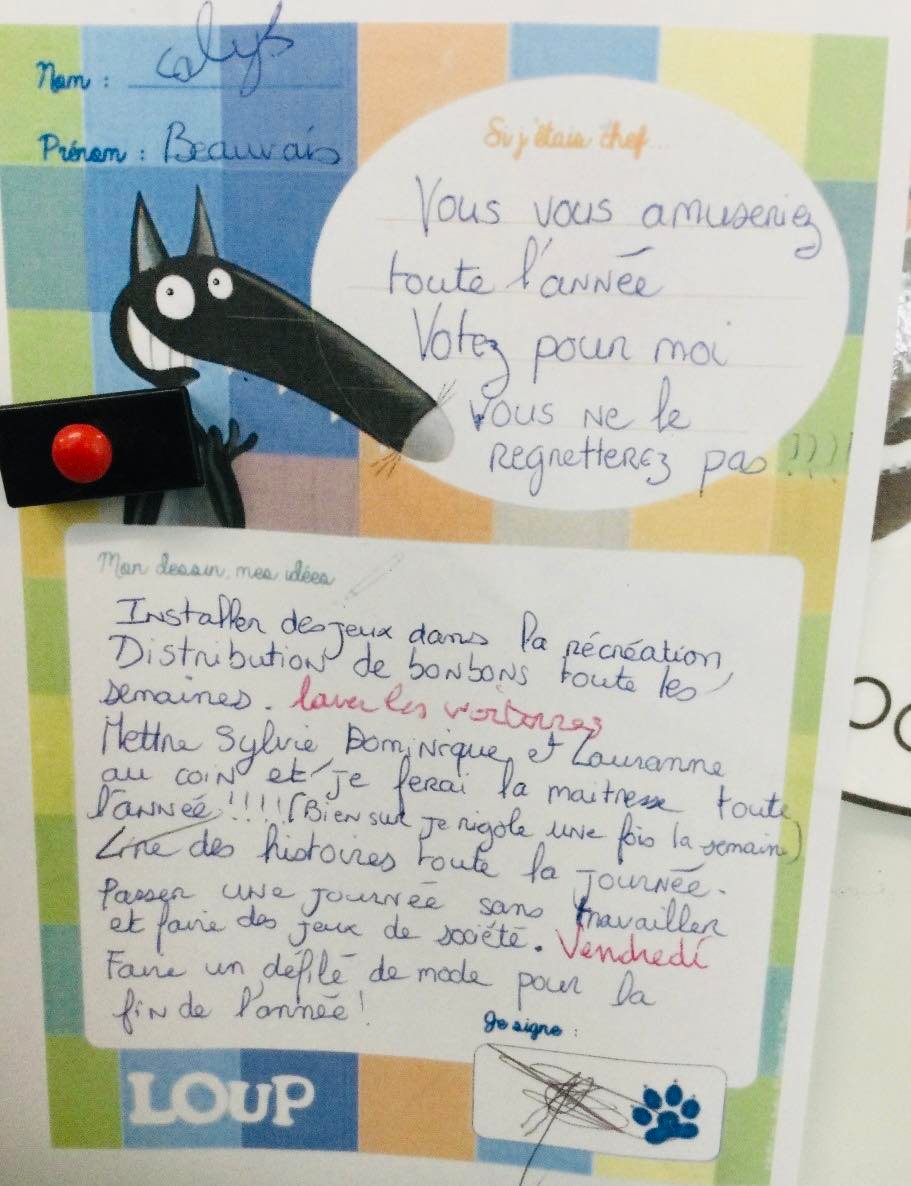 Nom : Calys
Prénom : Beauvais
Si j'étais chef...
Vous vous amuseriez
toute l'année
Votez pour moi
Vous ne le
regretterez pas !!!!
Mon dessin, mes idées
Installer des jeux dans la récréation
Distribution de bonbons toute les
semaines. laver les voitures
Mettre Sylvie Dominique et Lauranne
au coin et je ferai la maitresse toute
l'année !!!! (Bien sur je rigole une fois la semaine)
Lire des histoires toute la journée.
Passer une journée sans travailler
et faire des jeux de société. Vendredi
Faire un défilé de mode pour la
fin de l'année !
Je signe :
LOUP